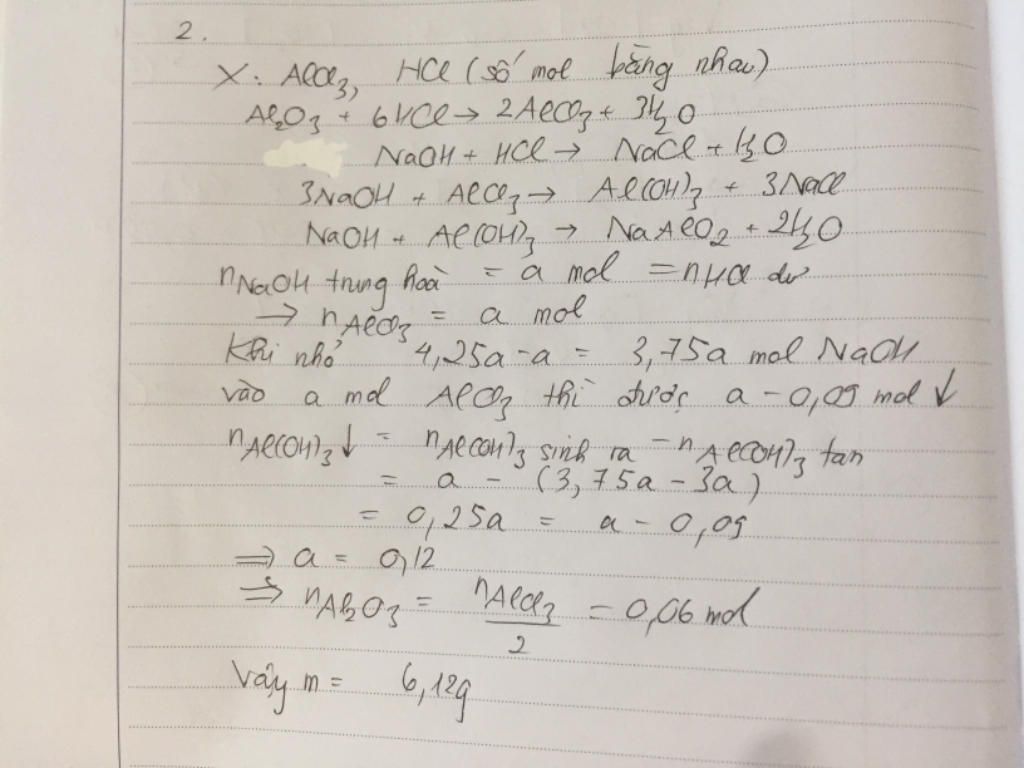 2.
X: AlCl3, HCl (số mol bằng nhau)
Al2O3 + 6HCl → 2AlCl3 + 3H2O
NaOH + HCl → NaCl + H2O
3NaOH + AlCl3 → Al(OH)3 + 3NaCl
NaOH + Al(OH)3 → NaAlO2 + 2H2O
nNaOH trung hoà = a mol = nHCl dư
→ nAlCl3 = a mol
Khi nhỏ 4,25a - a = 3,75a mol NaOH
vào a mol AlCl3 thì được a - 0,09 mol ↓
nAl(OH)3↓ = nAl(OH)3 sinh ra - nAl(OH)3 tan
= a - (3,75a - 3a)
= 0,25a = a - 0,09
⇒ a = 0,12
⇒ nAl2O3 = nAlCl3/2 = 0,06 mol
Vậy m = 6,12g